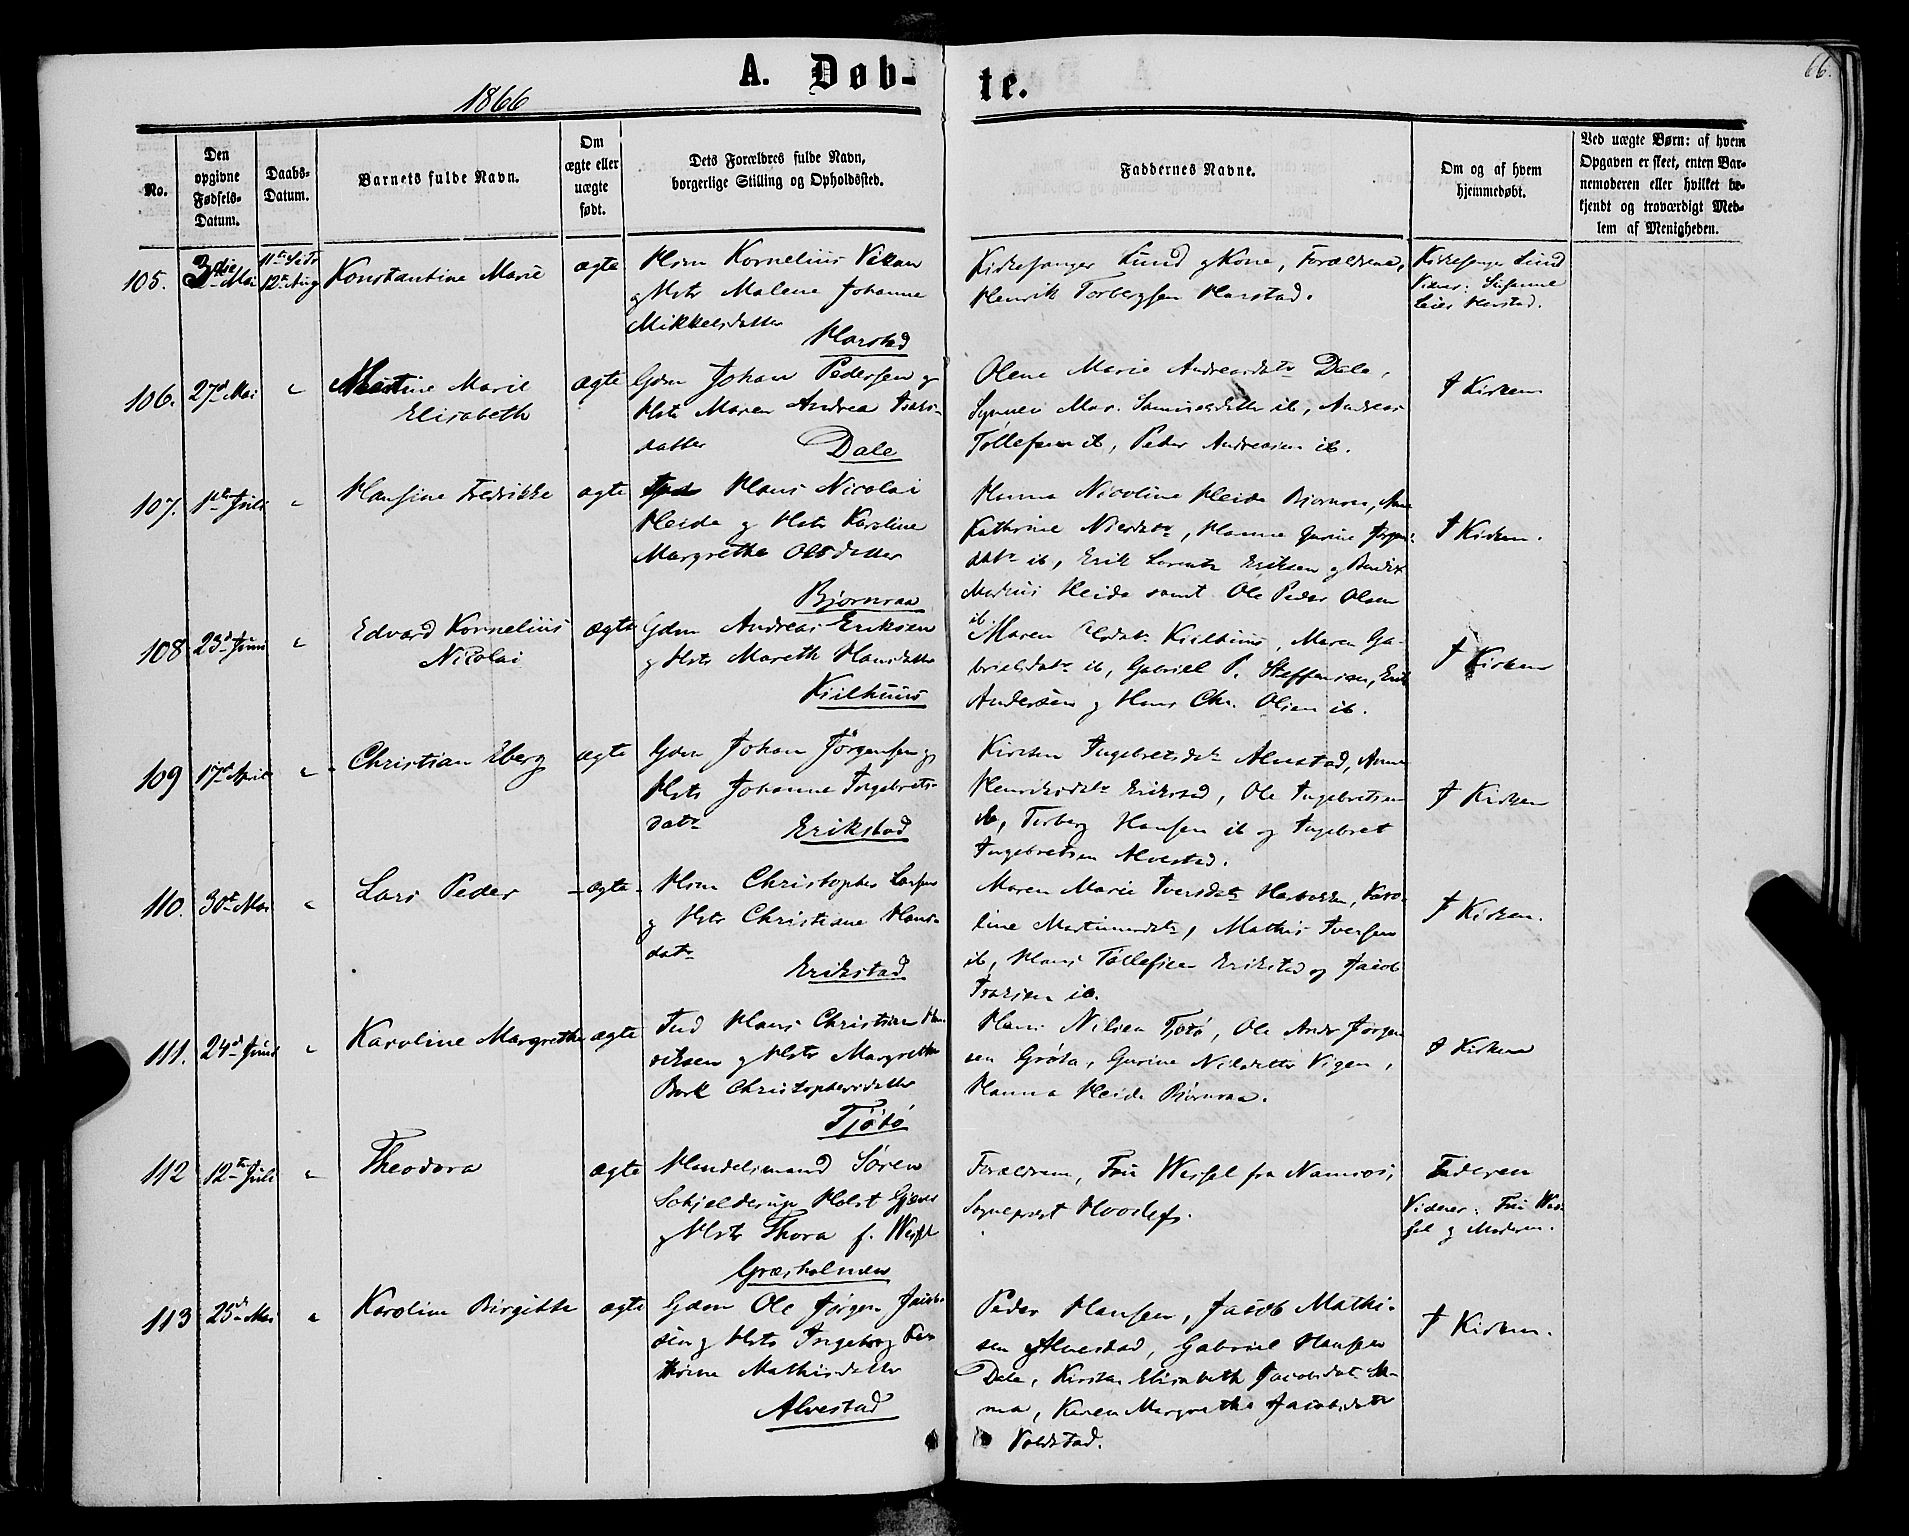 66.
A. Døb-te.
1866
No.
Den opgivne Fødsels-Datum.
Daabs-Datum.
Barnets fulde Navn.
Om ægte eller uægte født.
Dets Forældres fulde Navn, borgerlige Stilling og Opholdssted.
Faddernes Navne.
Om og af hvem hjemmedøbt.
Ved uægte Børn: af hvem Opgaven er skeet, enten Barnemoderen eller hvilket bekjendt og troværdigt Medlem af Menigheden.
105. 3die Mai 12te Aug Konstantine Marie ægte
Kornelius
og Hstr Malene Johanne
Mikkelsdatter
Harstad
Kirkesanger Lund og Kone, Forældrene,
Henrik Torbergsen Harstad.
Kirkesanger Lund
Vidner: Susanne
Harstad.
106. 27d Mai " Marie
Elisabeth ægte
Gdm Johan Pedersen og
Hstr Maren Andrea Isaks-
datter
Dale
Olene Marie Andreasdatr Dale,
ib, Andreas
Tollefsen ib, Peder Andreasen ib.
I Kirken
107. 1te Juli " Hansine Fredrikke ægte
Hans Nicolai
Heide og Hstr Karoline
Margrethe Olsdatter
Bjørnraa
Hanna Nicoline Heide Bjørnraa,
Kathrine Hanne Gurine
datr ib, Erik Lorents Eriksen og
Markus Heide samt Ole Peder Olsen
ib.
I Kirken.
108 23d Juni " Edvard Kornelius
Nicolai ægte
Gdm Andreas Eriksen
og Hstr Mareth Hansdatter
Kiilhuus
Maren Kiilhuus, Maren Ga-
brielsdatr ib, Gabriel P. Steffensen, Erik
Andersen og Hans Chr. Olsen ib.
I Kirken
109 17d April " Christian Eberg ægte
Gdm Johan Jørgensen og
Hstr Johanne Ingebrets-
datr
Erikstad
Kirsten Ingebretsdatr Alvestad, Anne
Henriksdatr Erikstad, Ole Ingebretsen
ib, Torberg Hansen ib og Ingebret
Ingebretsen Alvestad.
I Kirken
110. 30te Mai " Lars Peder ægte
Christopher Larsen
og Hstr Christiane Hans-
datr
Erikstad
Maren Marie Iversdatr Karo-
line Martinusdatr, Mathis Iversen
ib, Hans Tollefsen Erikstad og Jacob
Isaksen ib.
I Kirken.
111. 24d Juni " Karoline Margrethe ægte
Ind Hans Christian Hen-
riksen og Hstr Margrethe
Bork Christophersdatter
Tjøtø
Hans Nilsen Tjøtø, Ole Andr Jørgen-
sen Grøta, Gurine Nilsdatter Vigen,
Hanna Heide Bjørnraa.
I Kirken
112 12te Juli " Theodora ægte
Handelsmand Søren
Schjelderup Holst
og Hstr Thora f. Wessel
Græsholmen
Forældrene, Fru Wessel fra Namsos,
Sognepræst
Faderen
Vidner: Fru Wes-
sel og Moderen.
113 25d Mai " Karoline Birgitte ægte
Gdm Ole Jørgen Jacob-
sen og Hstr Ingeborg Ka-
thrine Mathisdatter
Alvestad
Peder Hansen, Jacob Mathi-
sen Alvestad, Gabriel Hansen
Dale, Kirsten Elisabeth Jacobsdatr
Karen Margrethe Jacobsdatr
Voldstad.
I Kirken.